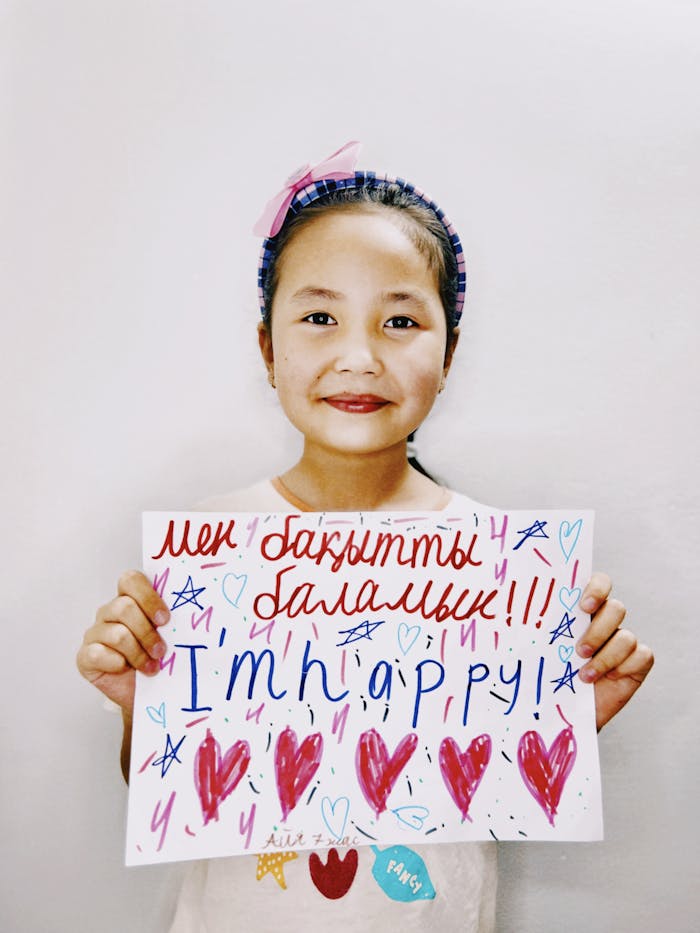 Мен бақытты
баламын!!!
I'm happy!
Айя 7 жас
FANCY